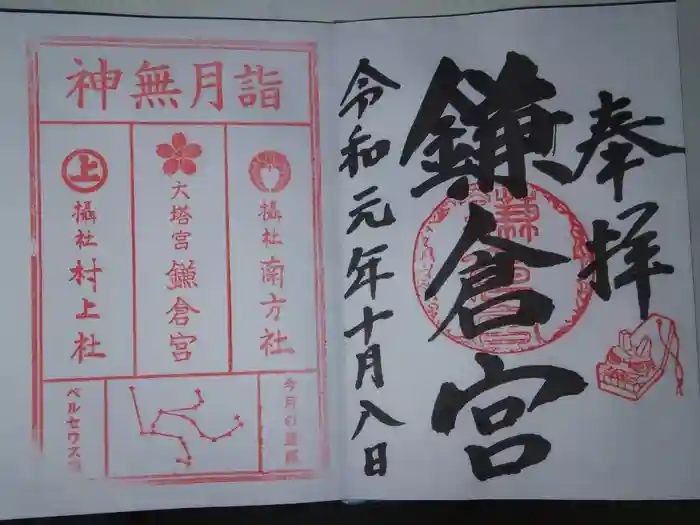 奉拝
鎌倉宮
令和元年十月八日
神無月詣
摂社 南方社
大塔宮 鎌倉宮
上
摂社 村上社
今月の星座
ペルセウス座